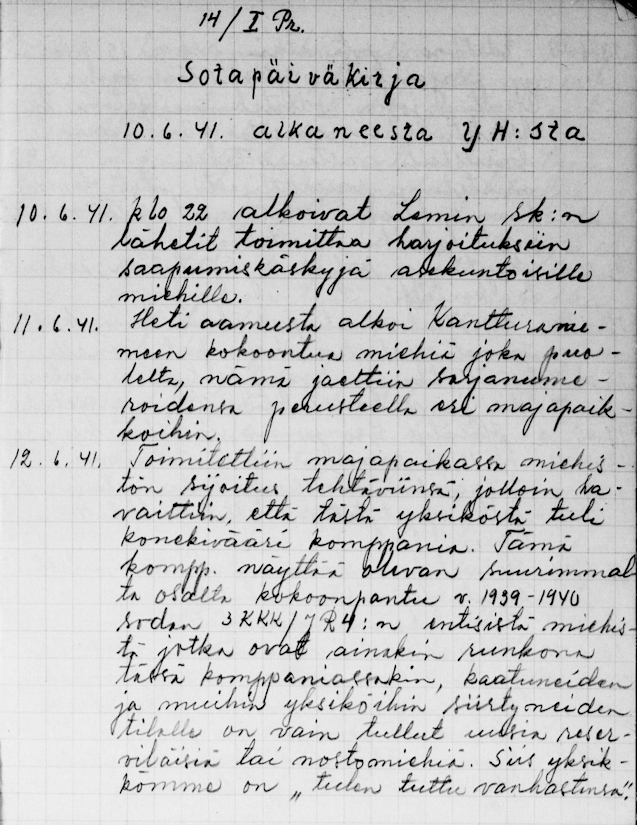 14/I Pr.
Sotapäiväkirja
10.6.41. alkaneesta YH:sta
10.6.41. klo 22 alkoivat Lemin sk:n
lähetit toimittaa harjoituksiin
saapumiskäskyjä asekuntoisille
miehille.
11.6.41. Heti aamusta alkoi Kantturanie-
meen kokoontua miehiä joka puo-
lelta, nämä jaettiin sarjanume-
roidensa perusteella eri majapaik-
koihin.
12.6.41. Toimitettiin majapaikassa miehis-
tön sijoitus tehtäviinsä, jolloin ha-
vaittiin, että tästä yksiköstä tuli
konekivääri komppania. Tämä
kompp. näyttää olevan suurimmal
ta osalta kokoonpantu v. 1939-1940
sodan 3KKK/JR4:n entisistä miehis-
tä jotka ovat ainakin runkona
tässä komppaniassakin, kaatuneiden
ja muihin yksiköihin siirtyneiden
tilalle on vain tullut uusia reser-
viläisiä tai nostomiehiä. Siis yksik-
kömme on „tulen tuttu vanhastansa".